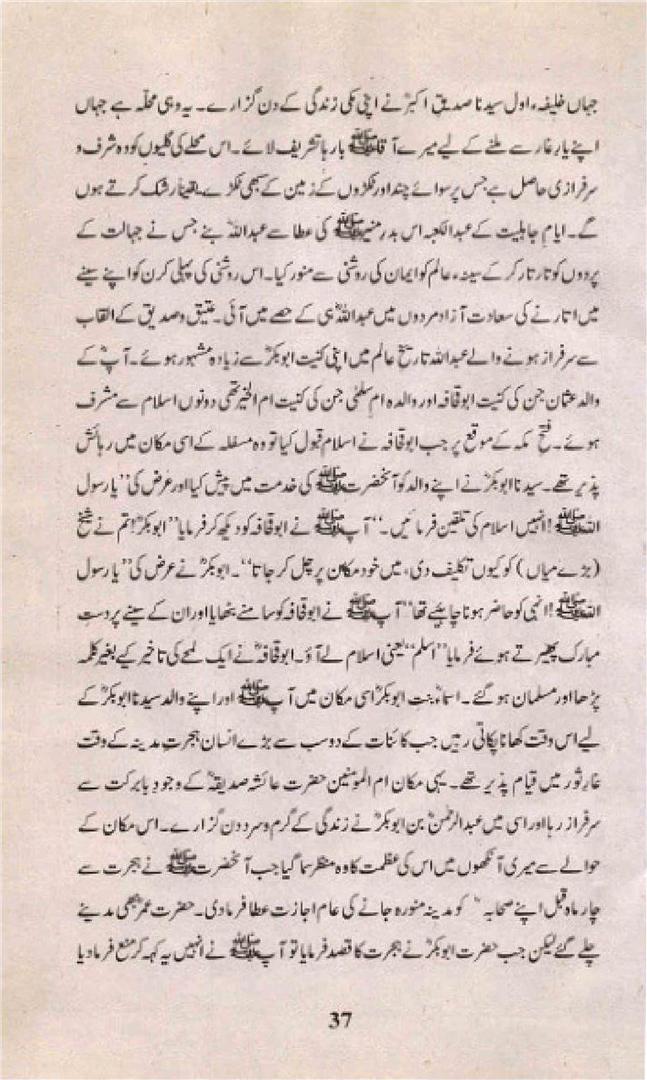 جہاں خلیفہء اول سیدنا صدیقِ اکبرؓ نے اپنی مکی زندگی کے دن گزارے۔ یہ وہی محلّہ ہے جہاں
اپنے یارِ غار سے ملنے کے لیے میرے آقاﷺ بارہا تشریف لائے۔ اس محلے کی گلیوں کو وہ شرف و
سرفرازی حاصل ہے جس پر سوائے چند اور ٹکڑوں کے زمین کے سبھی ٹکڑے یقیناً رشک کرتے ہوں
گے۔ ایامِ جاہلیت کے عبدالکعبہ اس بدرِ منیرﷺ کی عطا سے عبداللہؓ بنے جس نے جہالت کے
پردوں کو تار تار کر کے سینہء عالم کو ایمان کی روشنی سے منور کیا۔ اس روشنی کی پہلی کرن کو اپنے سینے
میں اتارنے کی سعادت آزاد مردوں میں عبداللہؓ ہی کے حصے میں آئی۔ عتیق و صدیق کے القاب
سے سرفراز ہونے والے عبداللہ تاریخِ عالم میں اپنی کنیت ابوبکرؓ سے زیادہ مشہور ہوئے۔ آپؓ کے
والد عثمان جن کی کنیت ابوقحافہ اور والدہ ام سلمٰی جن کی کنیت ام الخیر تھی دونوں اسلام سے مشرف
ہوئے۔ فتح مکہ کے موقع پر جب ابوقحافہ نے اسلام قبول کیا تو وہ مسفلہ کے اسی مکان میں رہائش
پذیر تھے۔ سیدنا ابوبکرؓ نے اپنے والد کو آنحضرتﷺ کی خدمت میں پیش کیا اور عرض کی ’’یا رسول
اللہﷺ! انہیں اسلام کی تلقین فرمائیں۔‘‘ آپﷺ نے ابوقحافہ کو دیکھ کر فرمایا ’’ابوبکرؓ! تم نے شیخ
(بڑے میاں) کو کیوں تکلیف دی، میں خود مکان پر چل کر جاتا‘‘۔ ابوبکرؓ نے عرض کی ’’یا رسول
اللہﷺ! انہی کو حاضر ہونا چاہیئے تھا‘‘ آپﷺ نے ابوقحافہ کو سامنے بٹھایا اور ان کے سینے پر دست
مبارک پھیرتے ہوئے فرمایا ’’اسلم‘‘ یعنی اسلام لے آؤ۔ ابوقحافہؓ نے ایک لمحے کی تاخیر کیے بغیر کلمہ
پڑھا اور مسلمان ہو گئے۔ اسماءؓ بنت ابوبکرؓ اسی مکان میں آپﷺ اور اپنے والد سیدنا ابوبکرؓ کے
لیے اس وقت کھانا پکاتی رہیں جب کائنات کے دو سب سے بڑے انسان ہجرتِ مدینہ کے وقت
غارِ ثور میں قیام پذیر تھے۔ یہی مکان ام المؤمنین حضرت عائشہ صدیقہؓ کے وجودِ بابرکت سے
سرفراز رہا اور اسی میں عبدالرحمٰنؓ بن ابوبکرؓ نے زندگی کے گرم و سرد دن گزارے۔ اس مکان کے
حوالے سے میری آنکھوں میں اس کی عظمت کا وہ منظر سما گیا جب آنحضرتﷺ نے ہجرت سے
چار ماہ قبل اپنے صحابہؓ کو مدینہ منورہ جانے کی عام اجازت عطا فرما دی۔ حضرت عمرؓ بھی مدینے
چلے گئے لیکن جب حضرت ابوبکرؓ نے ہجرت کا قصد فرمایا تو آپﷺ نے انہیں یہ کہہ کر منع فرما دیا
37